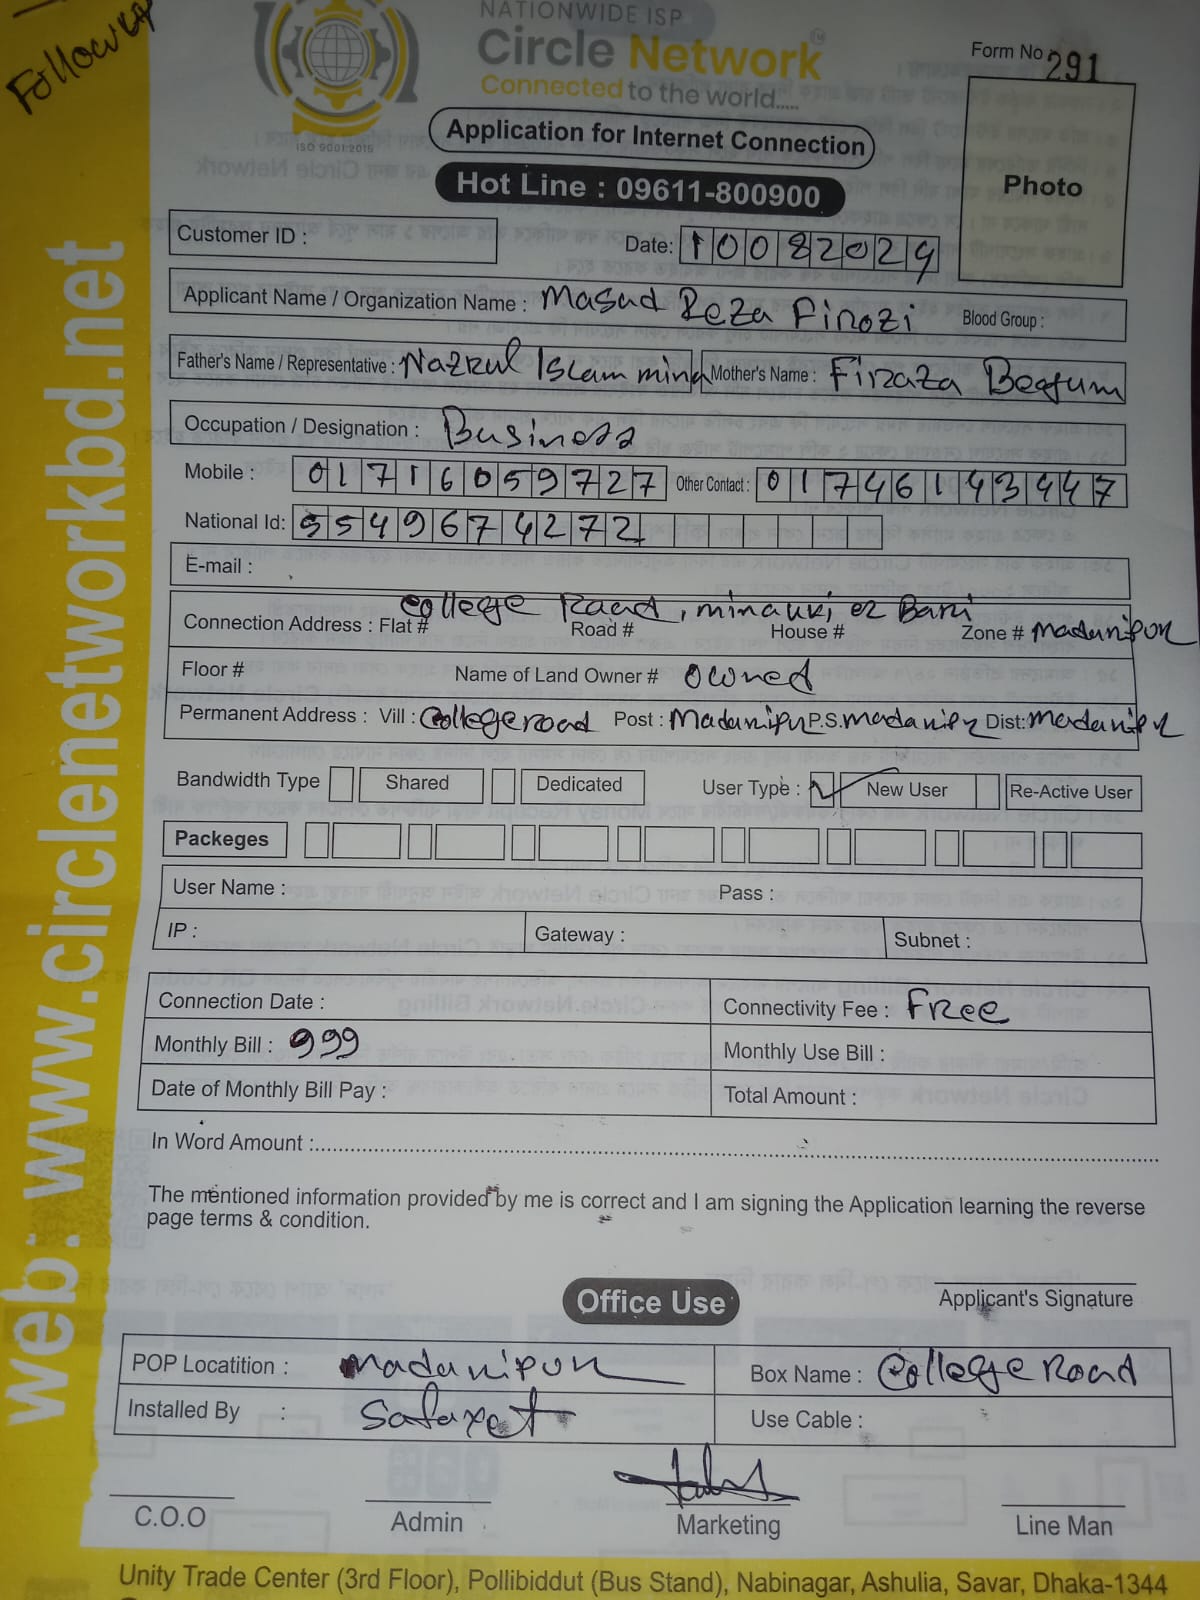 Followup
NATIONWIDE ISP
Circle Network
Connected to the world.....
ISO 9001:2015
Form No 291
Application for Internet Connection
Hot Line : 09611-800900
Photo
web: www.circlenetworkbd.net
Customer ID :
Date: 10082024
Applicant Name / Organization Name : Masud Reza Firozi Blood Group :
Father's Name / Representative : Nazrul Islam mina Mother's Name : Firaza Begum
Occupation / Designation : Business
Mobile : 01716059727 Other Contact : 01746143447
National Id: 5549674272
E-mail :
College Road, Bari
Connection Address : Flat # Road # House # Zone # Madaripur
Floor # Name of Land Owner # owned
Permanent Address : Vill : College road Post : Madaripur P.S. madaripur Dist: madaripur
Bandwidth Type Shared Dedicated User Type : New User Re-Active User
Packeges
User Name : Pass :
IP : Gateway : Subnet :
Connection Date : Connectivity Fee : Free
Monthly Bill : 999 Monthly Use Bill :
Date of Monthly Bill Pay : Total Amount :
In Word Amount :
The mentioned information provided by me is correct and I am signing the Application learning the reverse
page terms & condition.
Applicant's Signature
Office Use
POP Locatition : Madaripur Box Name : College Road
Installed By : Use Cable :
C.O.O Admin Marketing Line Man
Unity Trade Center (3rd Floor), Pollibiddut (Bus Stand), Nabinagar, Ashulia, Savar, Dhaka-1344